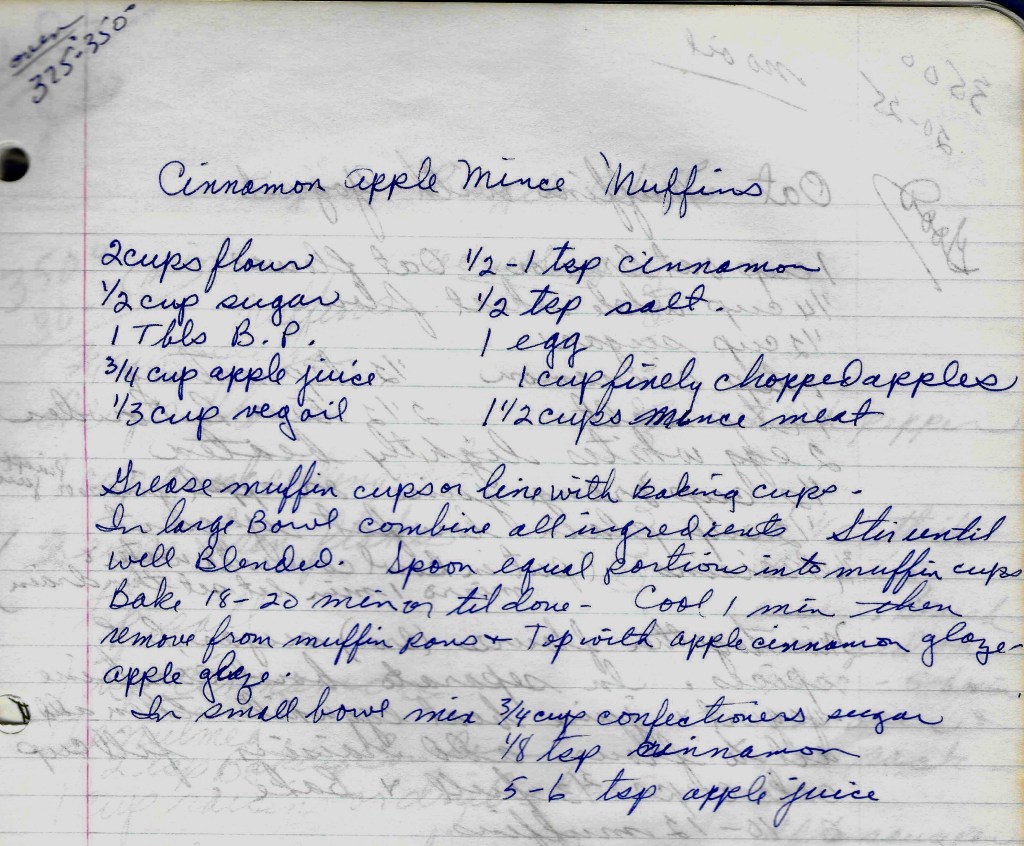 oven
325°-350°
Cinnamon apple Mince Muffins
2 cups flour
1/2 cup sugar
1 Tbls B.P.
3/4 cup apple juice
1/3 cup veg oil
1/2-1 tsp cinnamon
1/2 tsp salt.
1 egg
1 cup finely chopped apples
1 1/2 cups mince meat
Grease muffin cups or line with Baking cups.
In large Bowl combine all ingredients Stir until
well Blended. Spoon equal portions into muffin cups
Bake 18-20 min or til done - Cool 1 min then
remove from muffin pans + Top with apple cinnamon glaze-
apple glaze.
In small bowl mix 3/4 cup confectioners sugar
1/8 tsp cinnamon
5-6 tsp apple juice